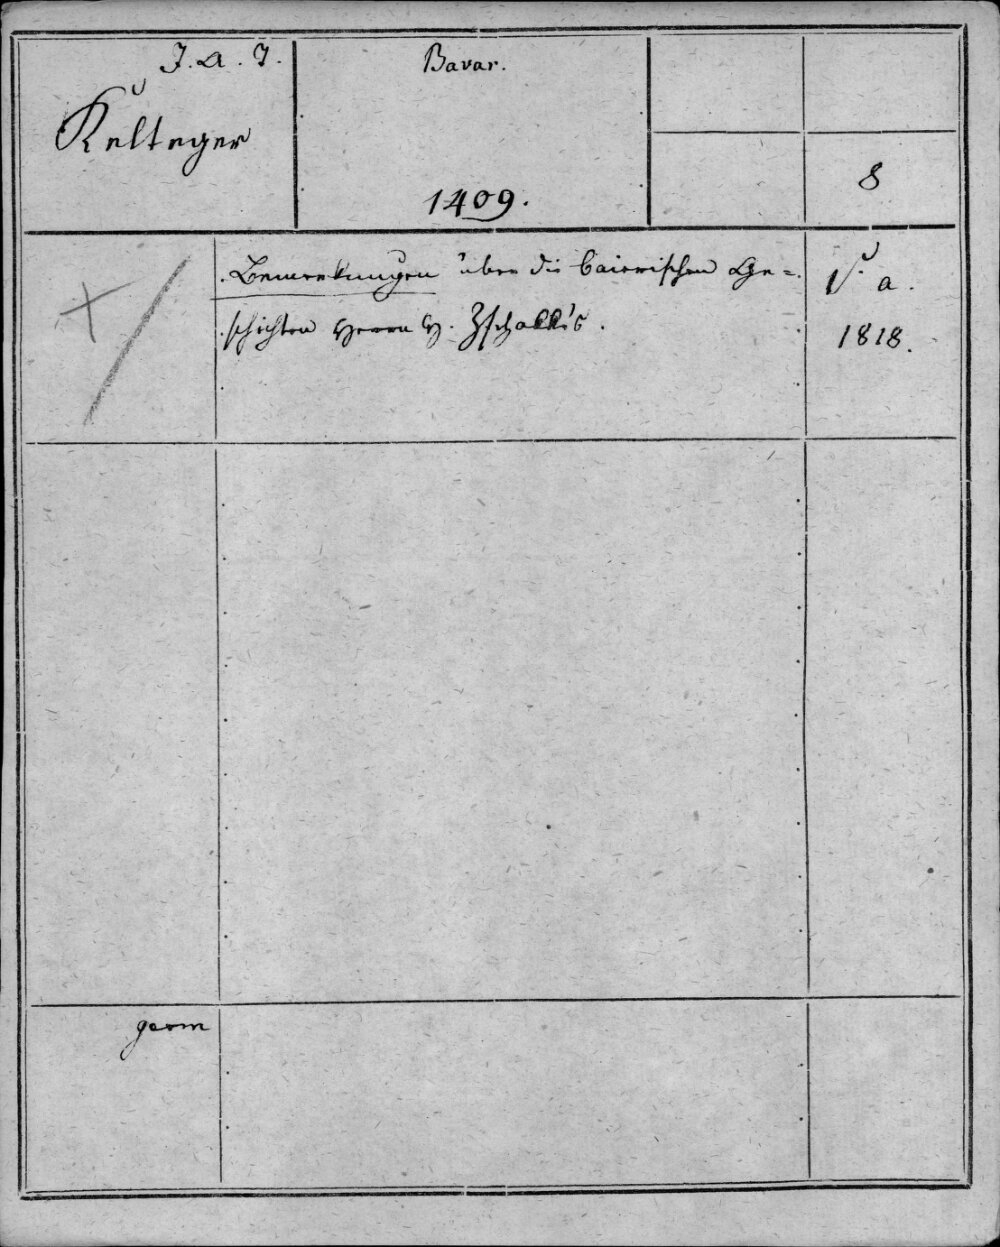 J. A. J.
Bavar.
Kelteger
8
1409.
Bemerkungen über die baierischen Ge=
schichten Herrn H. Zschokke's.
S. a.
1818.
germ